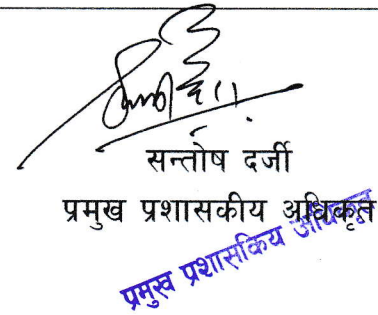 सन्तोष दर्जी
प्रमुख प्रशासकीय अधिकृत
प्रमुख प्रशासकिय अधिकृत